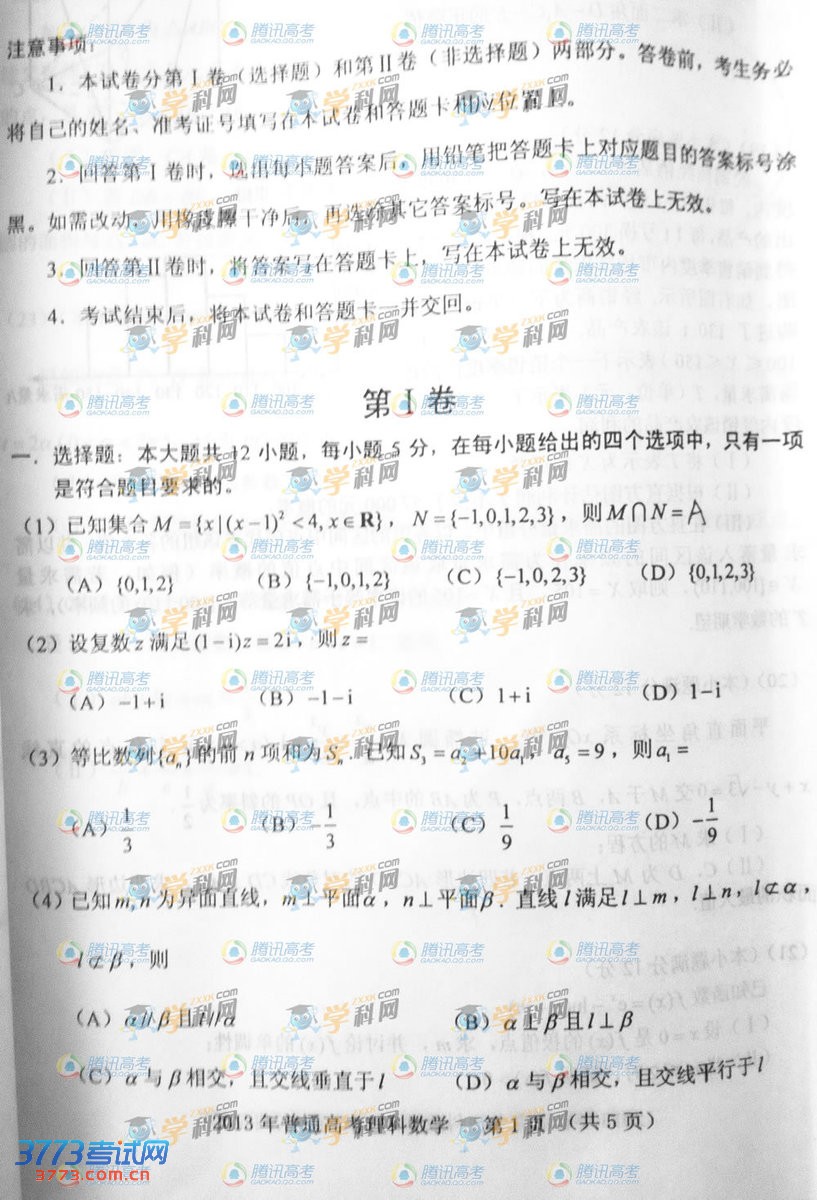 注意事项：
1．本试卷分第Ⅰ卷（选择题）和第Ⅱ卷（非选择题）两部分。答卷前，考生务必
将自己的姓名、准考证号填写在本试卷和答题卡相应位置上。
2．回答第Ⅰ卷时，选出每小题答案后，用铅笔把答题卡上对应题目的答案标号涂
黑。如需改动，用橡皮擦干净后，再选涂其它答案标号。写在本试卷上无效。
3．回答第Ⅱ卷时，将答案写在答题卡上，写在本试卷上无效。
4．考试结束后，将本试卷和答题卡一并交回。
第Ⅰ卷
一．选择题：本大题共12小题，每小题5分，在每小题给出的四个选项中，只有一项
是符合题目要求的。
（1）已知集合 M = {x | (x−1)² < 4, x∈R}，N = {−1,0,1,2,3}，则 M∩N = A
（A）{0,1,2} （B）{−1,0,1,2} （C）{−1,0,2,3} （D）{0,1,2,3}
（2）设复数 z 满足 (1−i)z = 2i，则 z =
（A）−1+i （B）−1−i （C）1+i （D）1−i
（3）等比数列{aₙ}的前 n 项和为 Sₙ．已知 S₃ = a₂ +10a₁，a₅ = 9，则 a₁ =
（A）1/3 （B）−1/3 （C）1/9 （D）−1/9
（4）已知 m, n 为异面直线，m⊥平面α，n⊥平面β．直线 l 满足 l⊥m，l⊥n，l⊄α，
l⊄β，则
（A）α//β且l//α （B）α⊥β且l⊥β
（C）α与β相交，且交线垂直于l （D）α与β相交，且交线平行于l
2013年普通高考理科数学 第1页（共5页）
3773考试网
3773.com.cn
腾讯高考
GAOKAO.QQ.COM
学科网
ZXXK.com